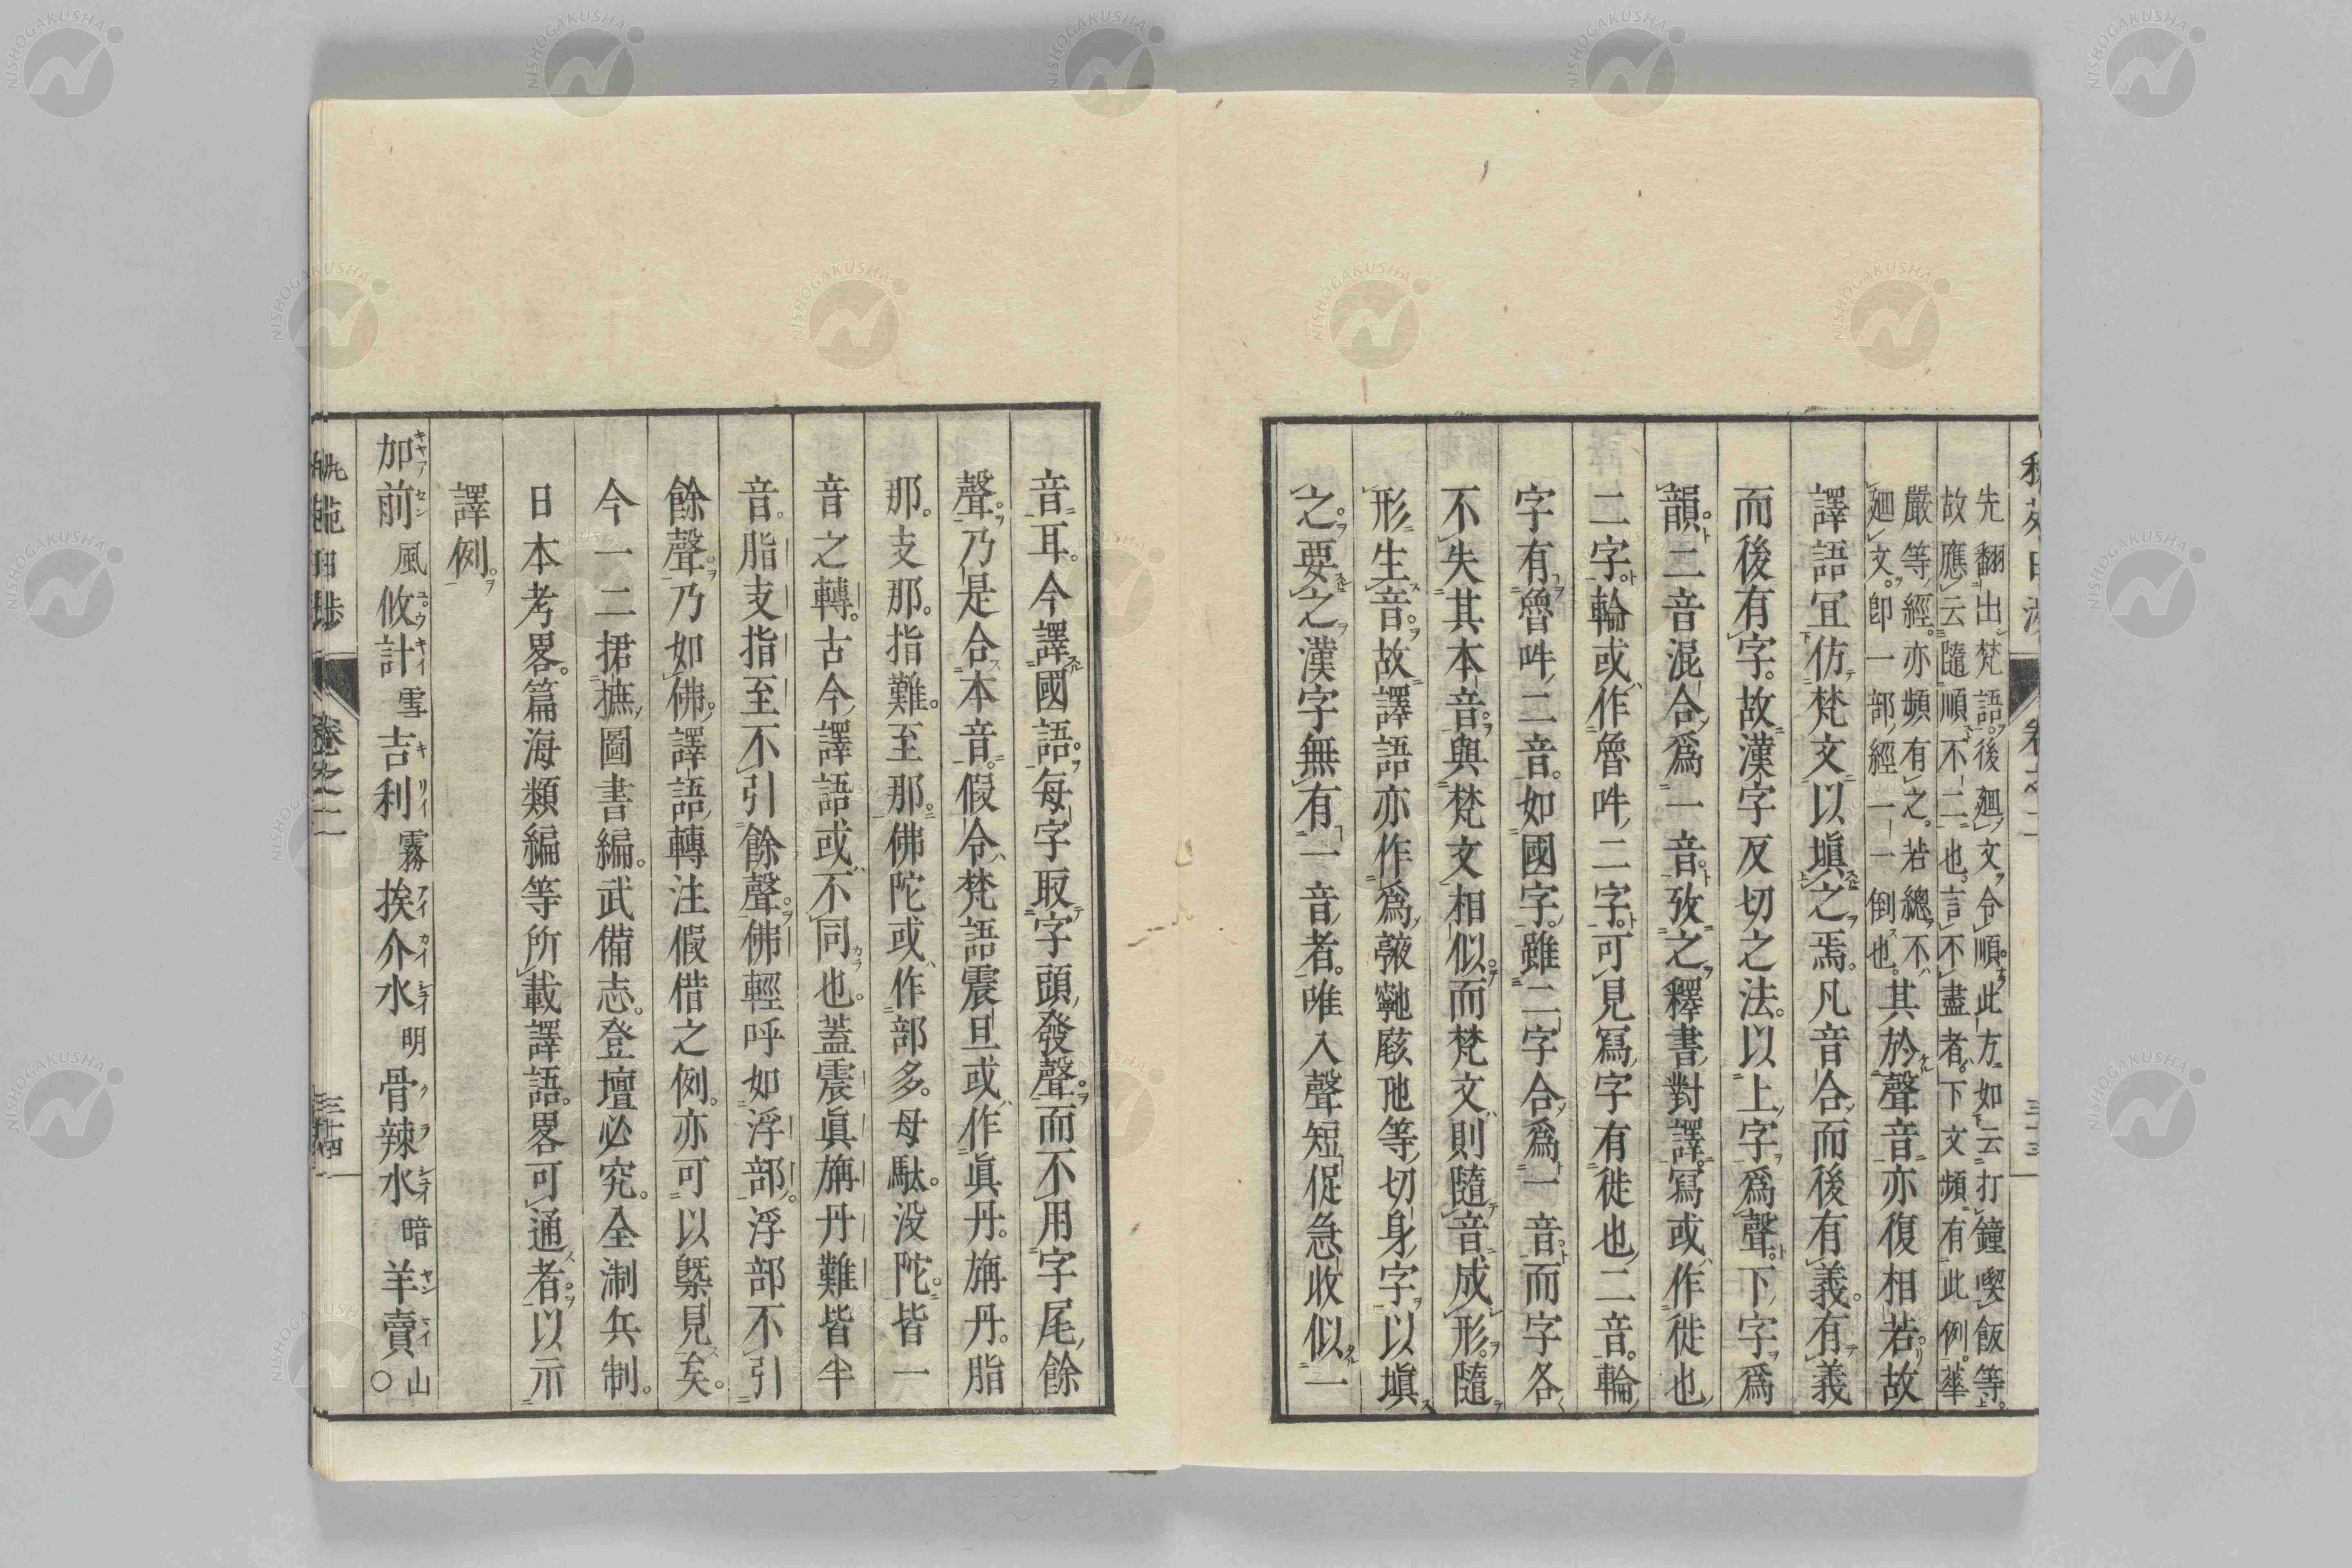 先翻出梵語。後廻文令順。此方如云打鐘喫飯等。
故應云隨順不二也。言不盡者。下文頻有此例。華
嚴等經。亦頻有之。若總不
廻文。卽一部經一一倒也。其於聲音亦復相若。故
譯語宜仿梵文以塡之焉。凡音合而後有義。有義
而後有字。故漢字反切之法。以上字爲聲。下字爲
韻。二音混合爲一音。攷之釋書對譯。寫或作徙也
二字。輪或作魯吽二字。可見寫字有徙也二音。輪
字有魯吽二音。如國字。雖二字合爲一音。而字各
不失其本音。與梵文相似。而梵文則隨音成形。隨
形生音。故譯語亦作爲等切身字以塡
之。要之漢字無有一音者。唯入聲短促急收似一
音耳。今譯國語。每字取字頭發聲。而不用字尾餘
聲。乃是合本音。假令梵語震旦或作眞丹。旃丹。脂
那。支那。指難。至那。佛陀或作部多。母馱。没陀。皆一
音之轉。古今譯語或不同也。蓋震眞旃丹難皆半
音。脂支指至不引餘聲。佛輕呼如浮部。浮部不引
餘聲。乃如佛。譯語轉注假借之例。亦可以槩見矣。
今一二捃摭圖書編。武備志。登壇必究。全淛兵制。
日本考畧。篇海類編等所載譯語。畧可通者。以示
譯例。
加前 風 攸計 雪 吉利 霧 挨介水 明 骨辣水 暗 羊賣 山 ○
卷之二
三十四
NISHOGAKUSHA